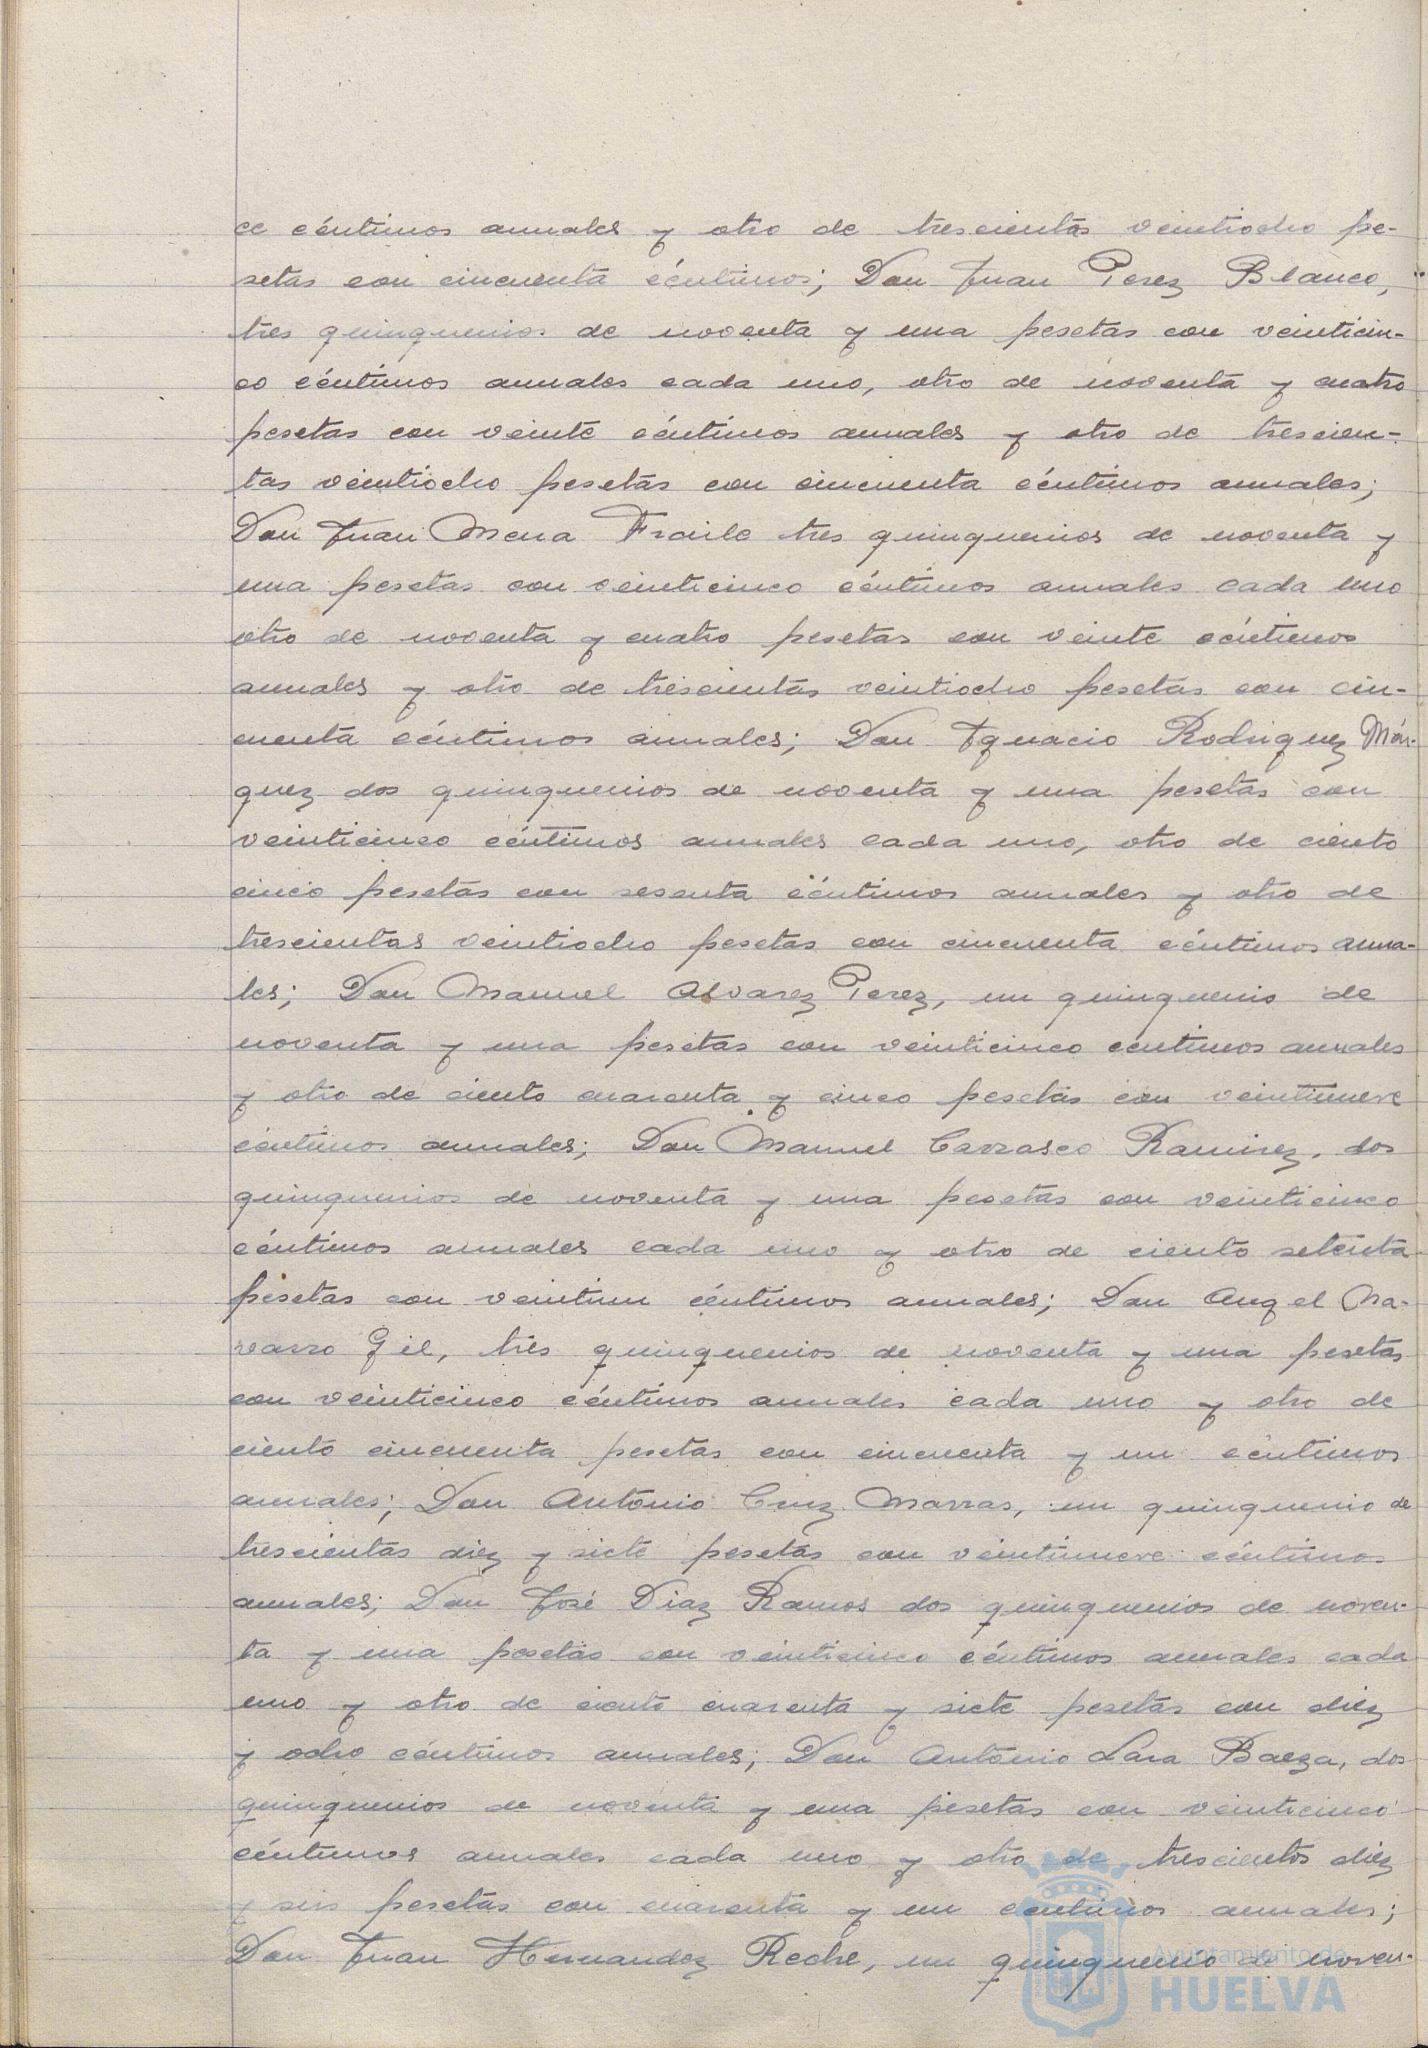 ce céntimos anuales y otro de trescientas veintiocho pe-
setas con cincuenta céntimos; Don Juan Perez Blanco,
tres quinquenios de noventa y una pesetas con veinticin-
co céntimos anuales cada uno, otro de noventa y cuatro
pesetas con veinte céntimos anuales y otro de trescien-
tas veintiocho pesetas con cincuenta céntimos anuales;
Don Juan Mena Fraile tres quinquenios de noventa y
una pesetas con veinticinco céntimos anuales cada uno
otro de noventa y cuatro pesetas con veinte céntimos
anuales y otro de trescientas veintiocho pesetas con cin-
cuenta céntimos anuales; Don Ignacio Rodriguez Már-
quez dos quinquenios de noventa y una pesetas con
veinticinco céntimos anuales cada uno, otro de ciento
cinco pesetas con sesenta céntimos anuales y otro de
trescientas veintiocho pesetas con cincuenta céntimos anua-
les; Don Manuel Alvarez Perez, un quinquenio de
noventa y una pesetas con veinticinco céntimos anuales
y otro de ciento cuarenta y cinco pesetas con veintinueve
céntimos anuales; Don Manuel Carrasco Ramirez, dos
quinquenios de noventa y una pesetas con veinticinco
céntimos anuales cada uno y otro de ciento setenta
pesetas con veintiun céntimos anuales; Don Angel Na-
varro Gil, tres quinquenios de noventa y una pesetas
con veinticinco céntimos anuales cada uno y otro de
ciento cincuenta pesetas con cincuenta y un céntimos
anuales; Don Antonio Cruz Marras, un quinquenio de
trescientas diez y siete pesetas con veintinueve céntimos
anuales; Don José Diaz Ramos dos quinquenios de noven-
ta y una pesetas con veinticinco céntimos anuales cada
uno y otro de ciento cuarenta y siete pesetas con diez
y ocho céntimos anuales; Don Antonio Lara Baeza, dos
quinquenios de noventa y una pesetas con veinticinco
céntimos anuales cada uno y otro de trescientos diez
y seis pesetas con cuarenta y un céntimos anuales;
Don Juan Hernandez Reche, un quinquenio de noven-
Ayuntamiento de
HUELVA